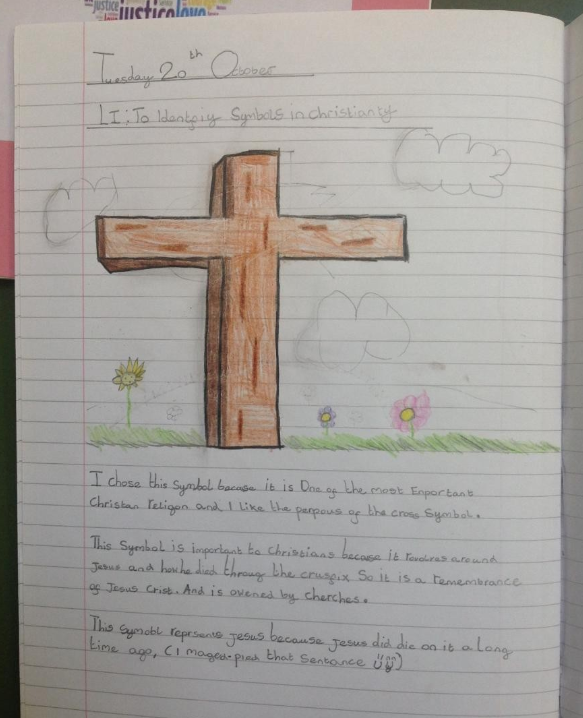 justice
justice
justicelove
Tuesday 20th October
LI: To Identify Symbols in christianity
I chose this symbol because it is One of the most Enportant
Christan religon and I like the perpous of the cross Symbol.
This Symbol is important to Christians because it revolves around
Jesus and how he died throug the cruspix So it is a remembrance
of Jesus Crist. And is owened by cherches.
This symobl reprsents jesus because Jesus did die on it a long
time ago, (I maged-pied that Sentance